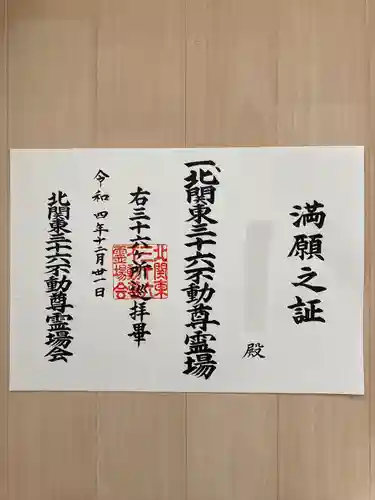 満願之証
殿
一、北関東三十六不動尊霊場
右三十六ヶ所巡拝畢
令和四年十二月廿一日
北関東三十六不動尊霊場会